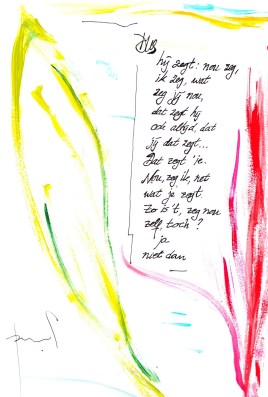 Dus
hij zegt: nou zeg,
ik zeg, wat
zeg jij nou,
dat zegt hij
ook altijd, dat
jij dat zegt...
Dat zegt 'ie.
Nou, zeg ik, net
wat je zegt.
Zo is 't, zeg nou
zelf, toch?
ja
niet dan